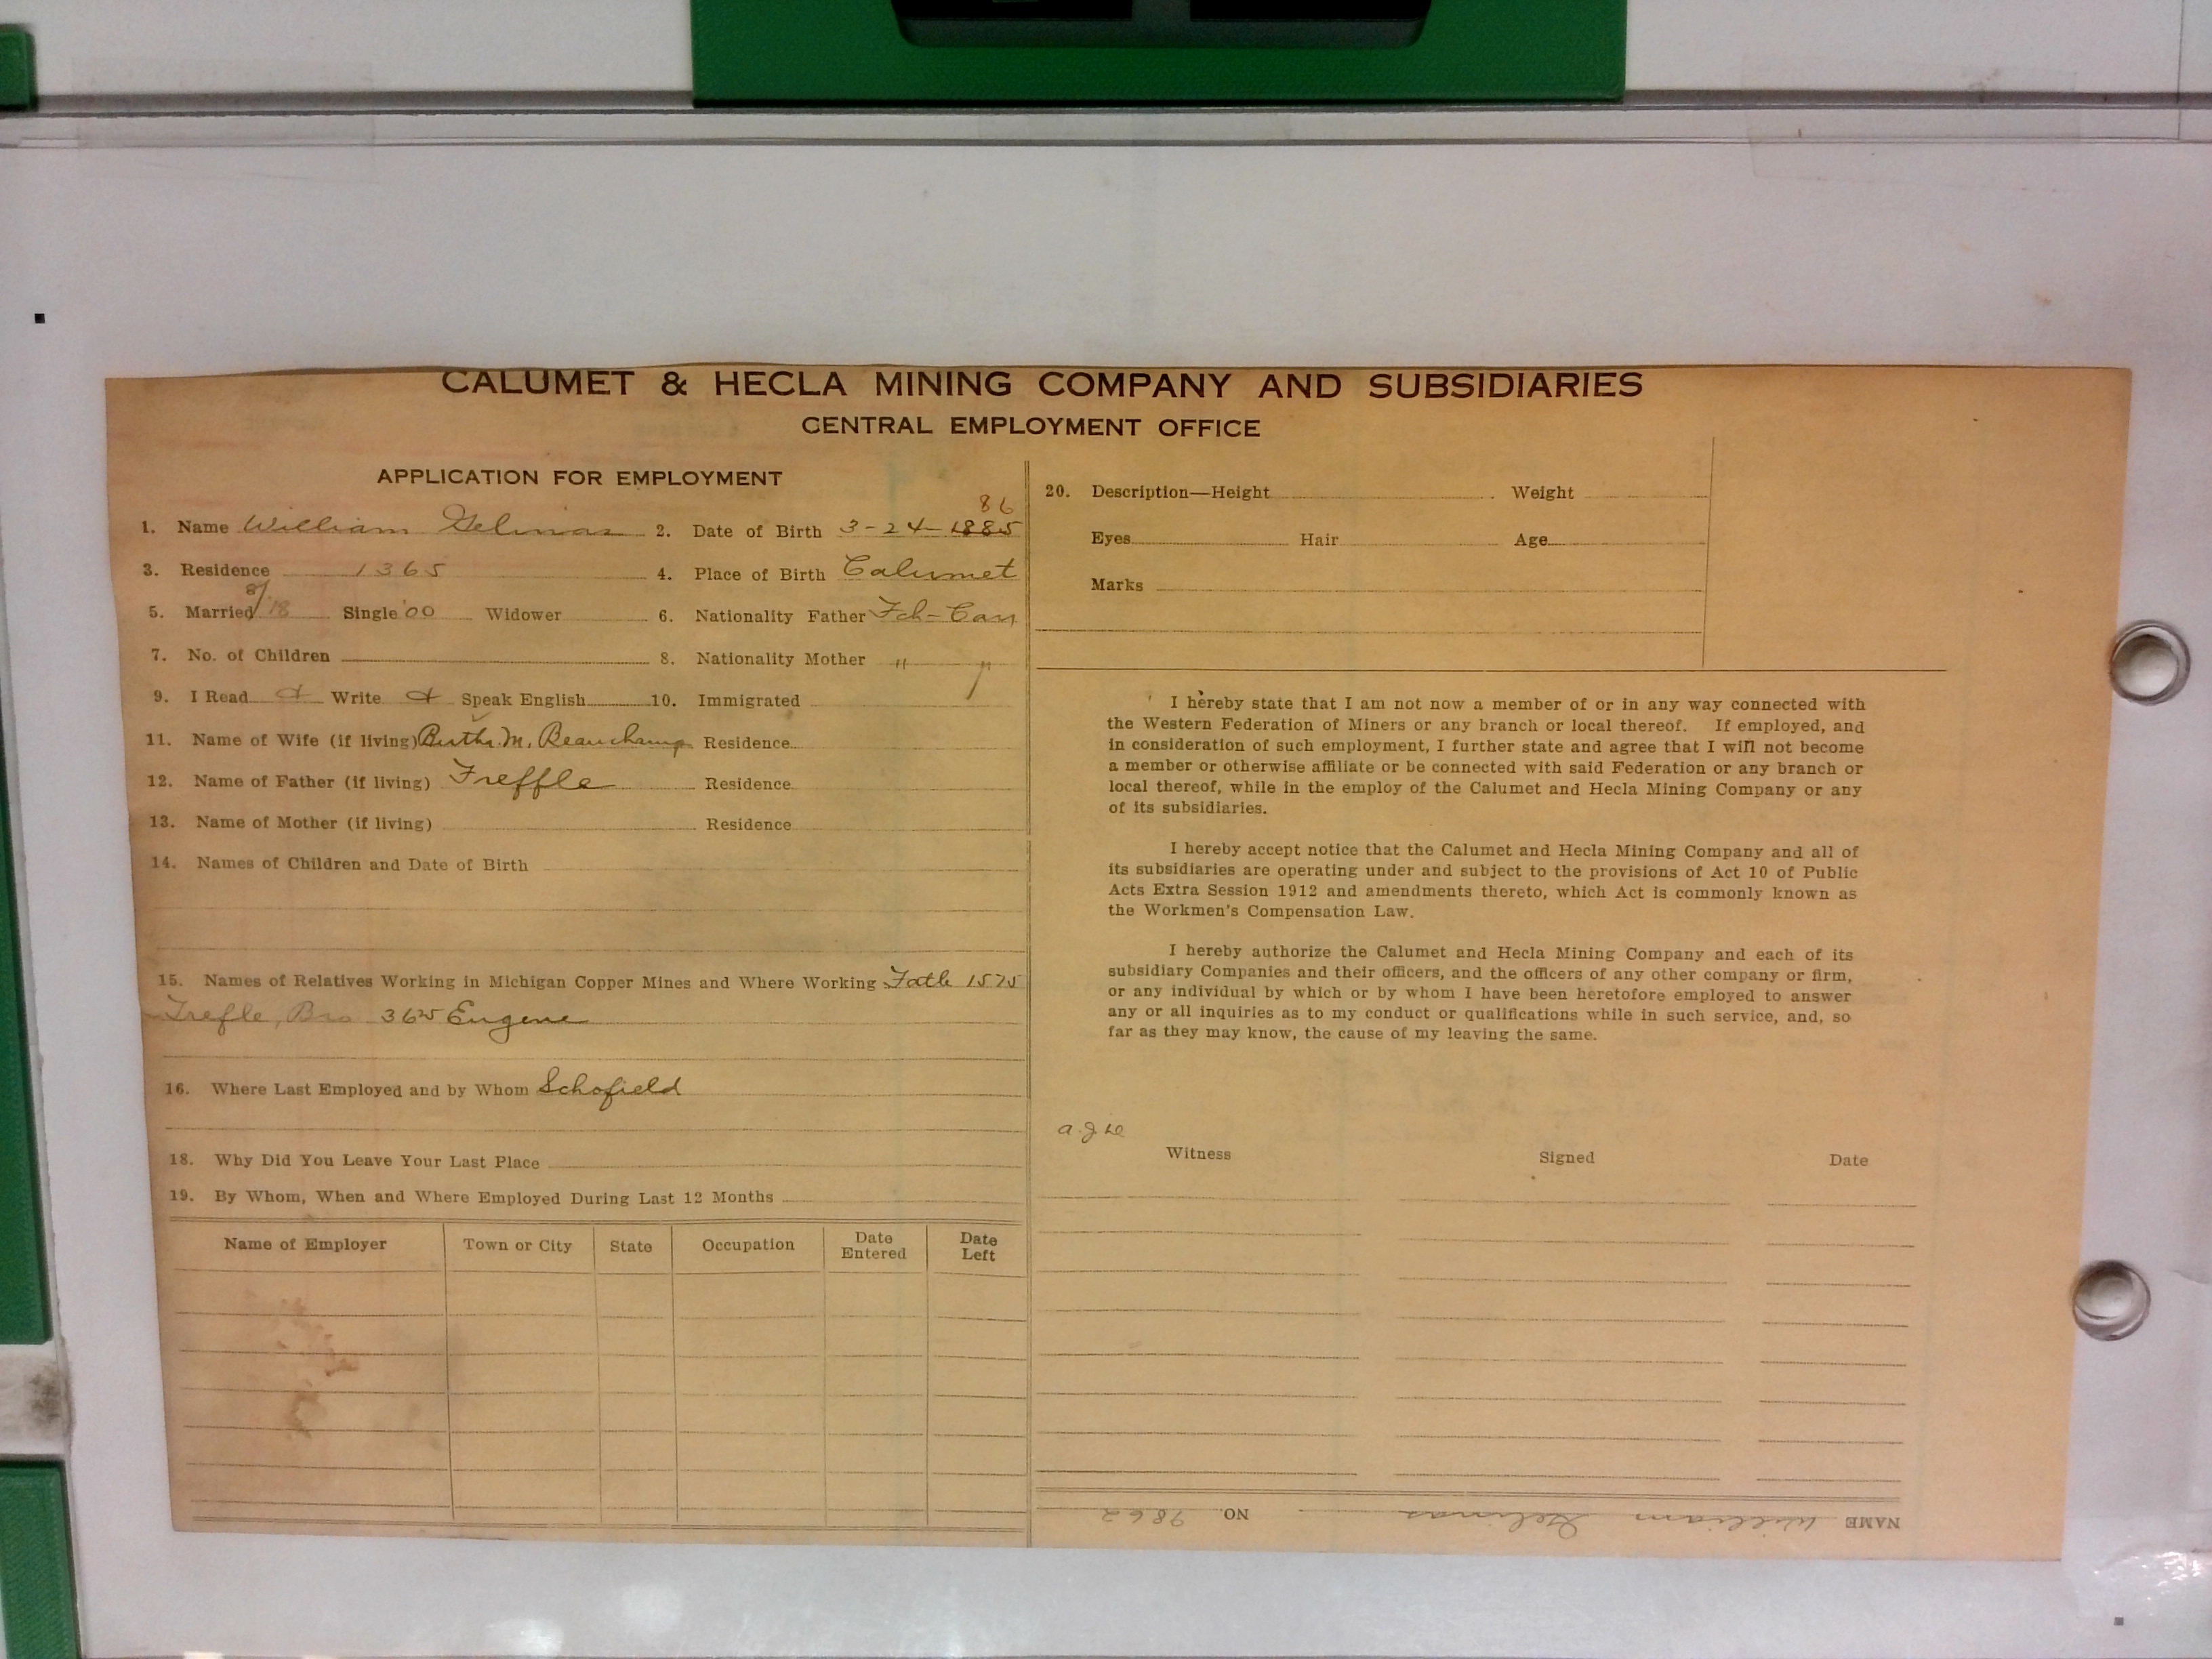 CALUMET & HECLA MINING COMPANY AND SUBSIDIARIES
CENTRAL EMPLOYMENT OFFICE
APPLICATION FOR EMPLOYMENT
86
1. Name William Gelinas 2. Date of Birth 3-24-1885
3. Residence 1365 4. Place of Birth Calumet
5. Married 8/18 Single '00 Widower 6. Nationality Father Fch-Can
7. No. of Children 8. Nationality Mother " "
9. I Read Write Speak English 10. Immigrated
11. Name of Wife (if living) Bertha M. Beauchamp Residence
12. Name of Father (if living) Treffle Residence
13. Name of Mother (if living) Residence
14. Names of Children and Date of Birth
15. Names of Relatives Working in Michigan Copper Mines and Where Working Fath 1575
Trefle, Bro 3625 Eugene
16. Where Last Employed and by Whom Schofield
18. Why Did You Leave Your Last Place
19. By Whom, When and Where Employed During Last 12 Months
Name of Employer Town or City State Occupation Date Entered Date Left
20. Description—Height Weight
Eyes Hair Age
Marks
I hereby state that I am not now a member of or in any way connected with
the Western Federation of Miners or any branch or local thereof. If employed, and
in consideration of such employment, I further state and agree that I will not become
a member or otherwise affiliate or be connected with said Federation or any branch or
local thereof, while in the employ of the Calumet and Hecla Mining Company or any
of its subsidiaries.
I hereby accept notice that the Calumet and Hecla Mining Company and all of
its subsidiaries are operating under and subject to the provisions of Act 10 of Public
Acts Extra Session 1912 and amendments thereto, which Act is commonly known as
the Workmen's Compensation Law.
I hereby authorize the Calumet and Hecla Mining Company and each of its
subsidiary Companies and their officers, and the officers of any other company or firm,
or any individual by which or by whom I have been heretofore employed to answer
any or all inquiries as to my conduct or qualifications while in such service, and, so
far as they may know, the cause of my leaving the same.
Witness Signed Date
NAME William Gelinas NO. 9862